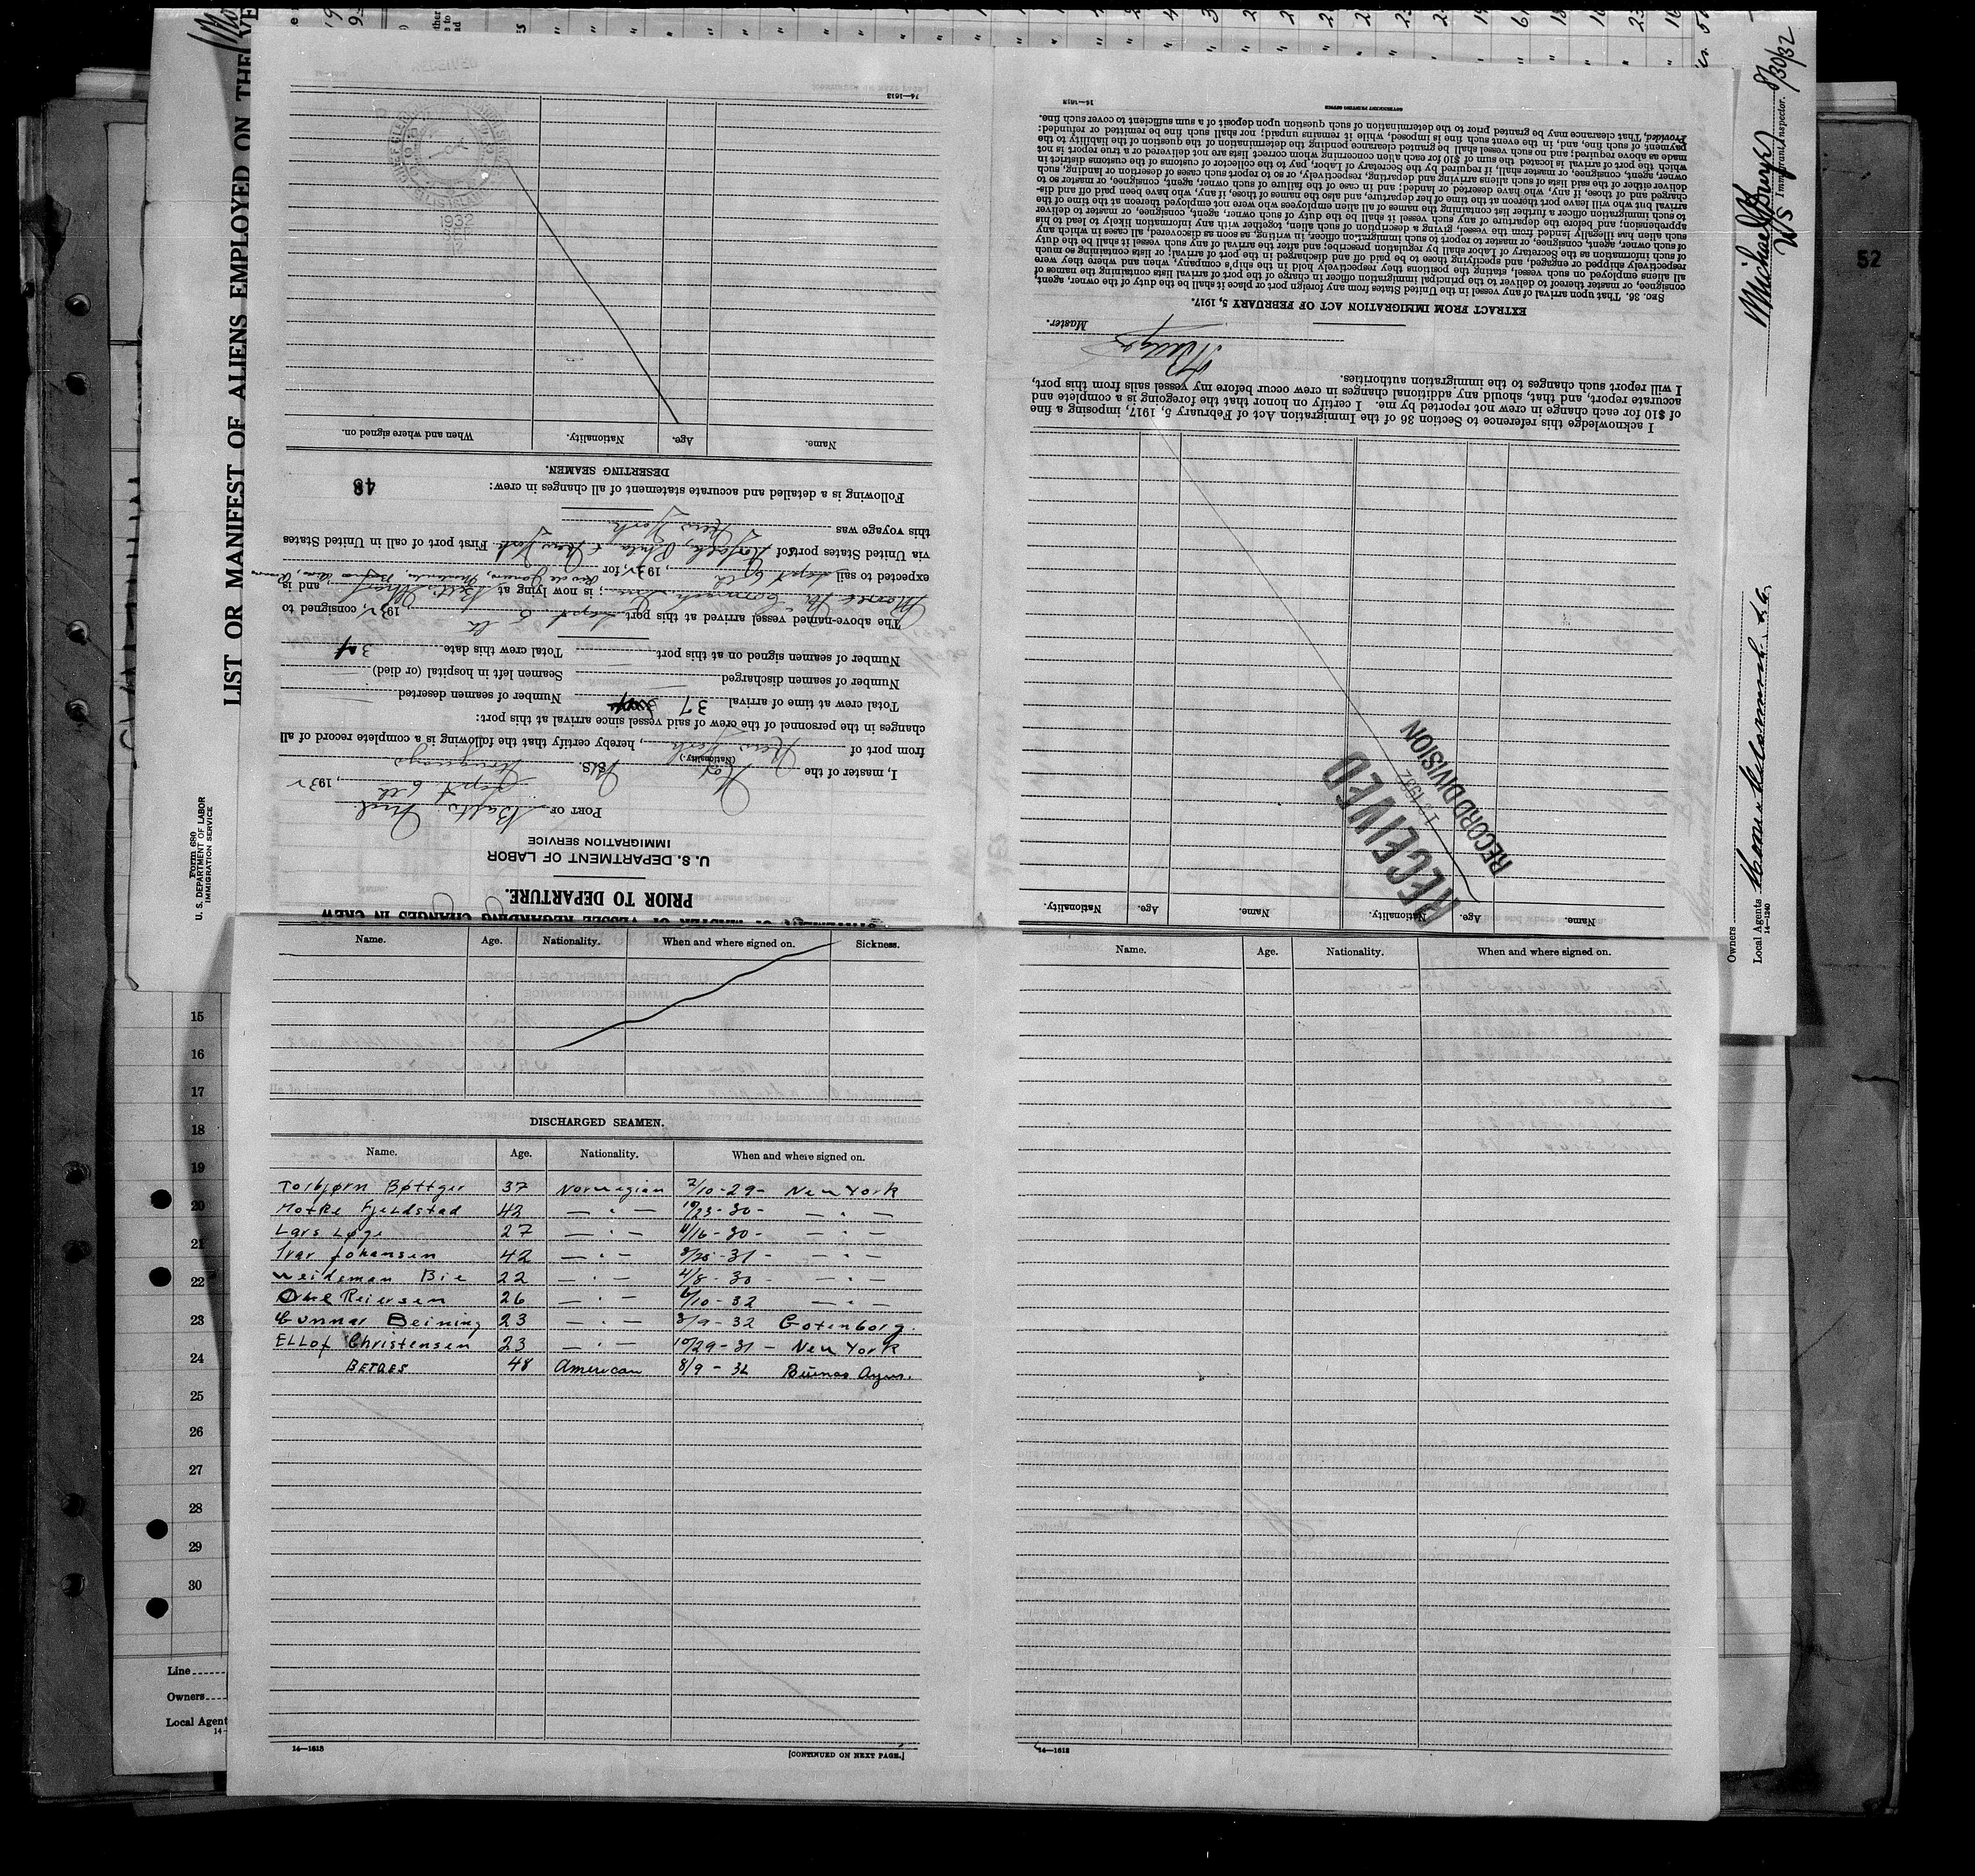 LIST OR MANIFEST OF ALIENS EMPLOYED ON THE VE
Form 680
U. S. DEPARTMENT OF LABOR
IMMIGRATION SERVICE
PRIOR TO DEPARTURE.
U. S. DEPARTMENT OF LABOR
IMMIGRATION SERVICE
PORT OF Balto. Md
Sept 6th, 1932
I, master of the Nor. (Nationality.) M/S.
from port of New York, hereby certify that the following is a complete record of all
changes in the personnel of the crew of said vessel since arrival at this port:
Total crew at time of arrival 37 Number of seamen deserted
Number of seamen discharged Seamen left in hospital (or died)
Number of seamen signed on at this port Total crew this date
The above-named vessel arrived at this port Sept 6 th 1932, consigned to
Moore & McCormack; is now lying at; and is
expected to sail Sept 6 th, 1932, for Rio de Janeiro, Santos, Buenos Aires
via United States ports of Norfolk, Phila & New York. First port of call in United States
this voyage was New York
Following is a detailed and accurate statement of all changes in crew: 48
DESERTING SEAMEN.
Name. Age. Nationality. When and where signed on.
14—1613
Name. Age. Nationality. Name. Age. Nationality.
RECEIVED
1932
RECORD DIVISION
I acknowledge this reference to Section 36 of the Immigration Act of February 5, 1917, imposing a fine
of $10 for each change in crew not reported by me. I certify on honor that the foregoing is a complete and
accurate report, and that, should any additional changes in crew occur before my vessel sails from this port,
I will report such changes to the immigration authorities.
Master.
EXTRACT FROM IMMIGRATION ACT OF FEBRUARY 5, 1917.
SEC. 36. That upon arrival of any vessel in the United States from any foreign port or place it shall be the duty of the owner, agent,
consignee, or master thereof to deliver to the principal immigration officer in charge of the port of arrival lists containing the names of
all aliens employed on such vessel, stating the positions they respectively hold in the ship's company, when and where they were
respectively shipped or engaged, and specifying those to be paid off and discharged in the port of arrival; or lists containing so much
of such information as the Secretary of Labor shall by regulation prescribe; and after the arrival of any such vessel it shall be the duty
of such owner, agent, consignee, or master to report to such immigration officer, in writing, as soon as discovered, all cases in which any
such alien has illegally landed from the vessel, giving a description of such alien, together with any information likely to lead to his
apprehension; and before the departure of any such vessel it shall be the duty of such owner, agent, consignee, or master to deliver
to such immigration officer a further list containing the names of all alien employees who were not employed thereon at the time of the
arrival but who will leave port thereon at the time of her departure, and also the names of those, if any, who have been paid off and dis-
charged and of those, if any, who have deserted or landed; and in case of the failure of such owner, agent, consignee, or master so to
deliver either of the said lists of such aliens arriving and departing, respectively, or so to report such cases of desertion or landing, such
owner, agent, consignee, or master, shall, if required by the Secretary of Labor, pay to the collector of customs of the customs district in
which the port of arrival is located the sum of $10 for each alien concerning whom correct lists are not delivered or a true report is not
made as above required; and no such vessel shall be granted clearance pending the determination of the question of the liability to the
payment of such fine, and, in the event such fine is imposed, while it remains unpaid; nor shall such fine be remitted or refunded:
Provided, That clearance may be granted prior to the determination of such question upon deposit of a sum sufficient to cover such fine.
14—1613 GOVERNMENT PRINTING OFFICE
Immigrant Inspector.
52
Owners
Local Agents Moore & McCormack
14—1240
Name. Age. Nationality. When and where signed on. Sickness.
DISCHARGED SEAMEN.
Name. Age. Nationality. When and where signed on.
Torbjørn Bøttger 37 Norwegian 2/10-29- New York
Motke Fjeldstad 42 — " — 10/23-30- — " —
Lars Løge 27 — " — 11/16-30- — " —
Ivar Johansen 42 — " — 8/28-31- — " —
Weideman Bie 22 — " — 4/8-30- — " —
Reiersen 26 — " — 6/10-32 — " —
Gunnar Beining 23 — " — 3/9-32 Gotenborg.
Ellof Christensen 23 — " — 10/29-31- New York
BETGES 48 American 8/9-32 Buenos Ayres.
14—1613 [CONTINUED ON NEXT PAGE.]
Name. Age. Nationality. When and where signed on.
14—1613
15
16
17
18
19
20
21
22
23
24
25
26
27
28
29
30
Line
Owners
Local Agent